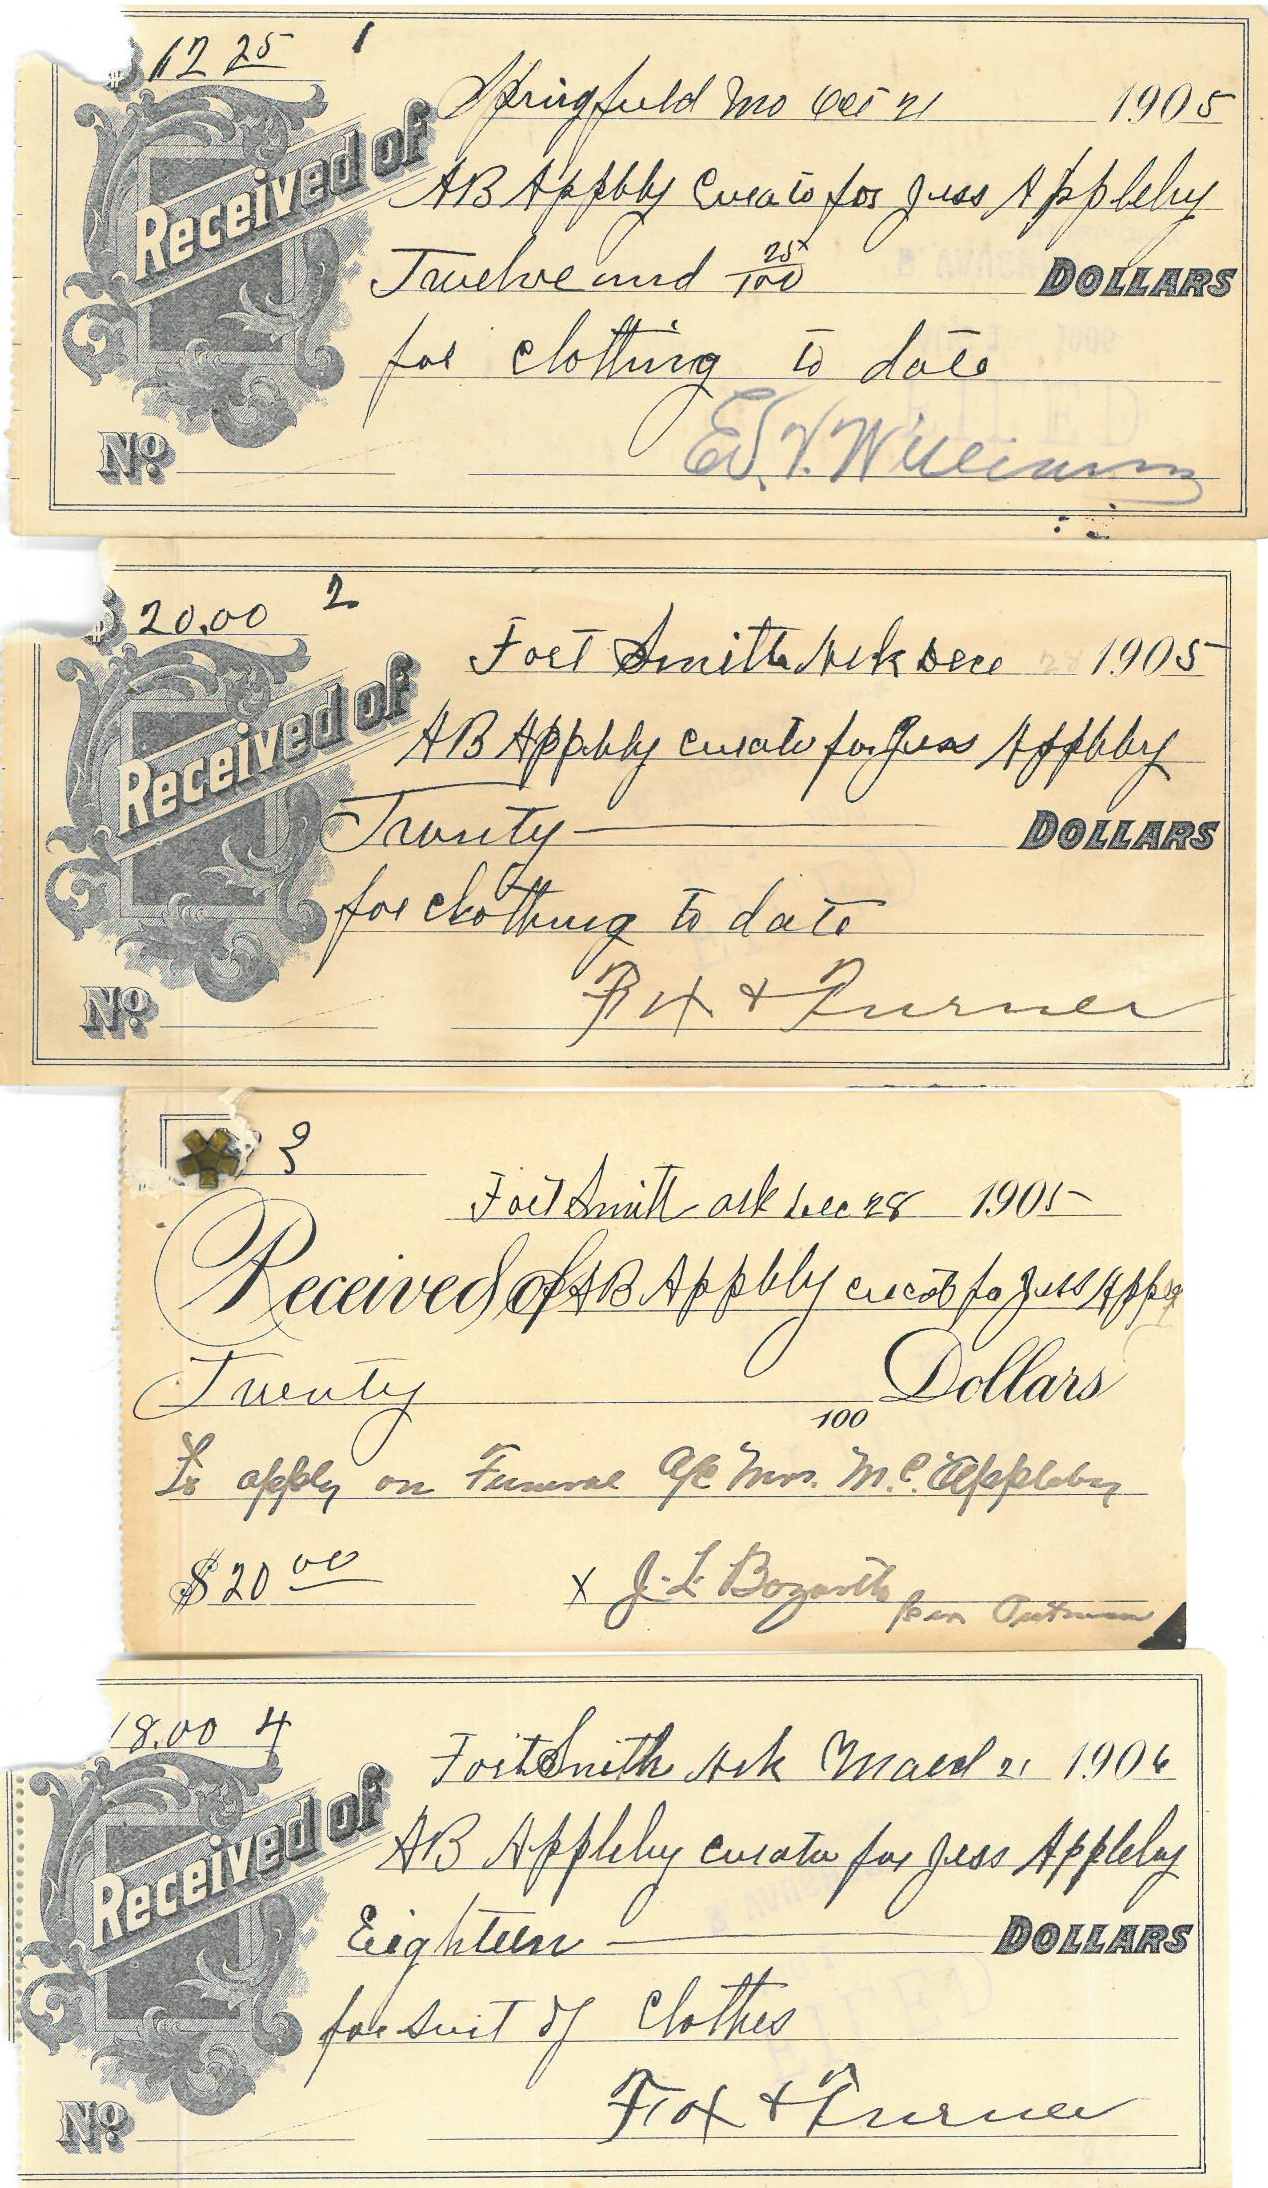 $ 12 25 1
Springfield Mo Oct 21 1905
Received of AB Appleby Curato for Jess Appleby
Twelve and 25/100 DOLLARS
for clothing to date
No. Ed. V. Williams
$ 20.00 2
Fort Smith Ark Dece 28 1905
Received of AB Appleby curato for Jess Appleby
Twenty DOLLARS
for clothing to date
No. Fox & Turner
3
Fort Smith Ark Dec 28 1905
Received of AB Appleby curato for Jess Appleby
Twenty 100 Dollars
To apply on Funeral a/c Mrs. M.C. Appleby
$20 00 X J. L. Bozarth per Putman
18.00 4
Fort Smith Ark March 21 1906
Received of AB Appleby curator for Jess Appleby
Eighteen DOLLARS
for suit of Clothes
No. Fox & Turner